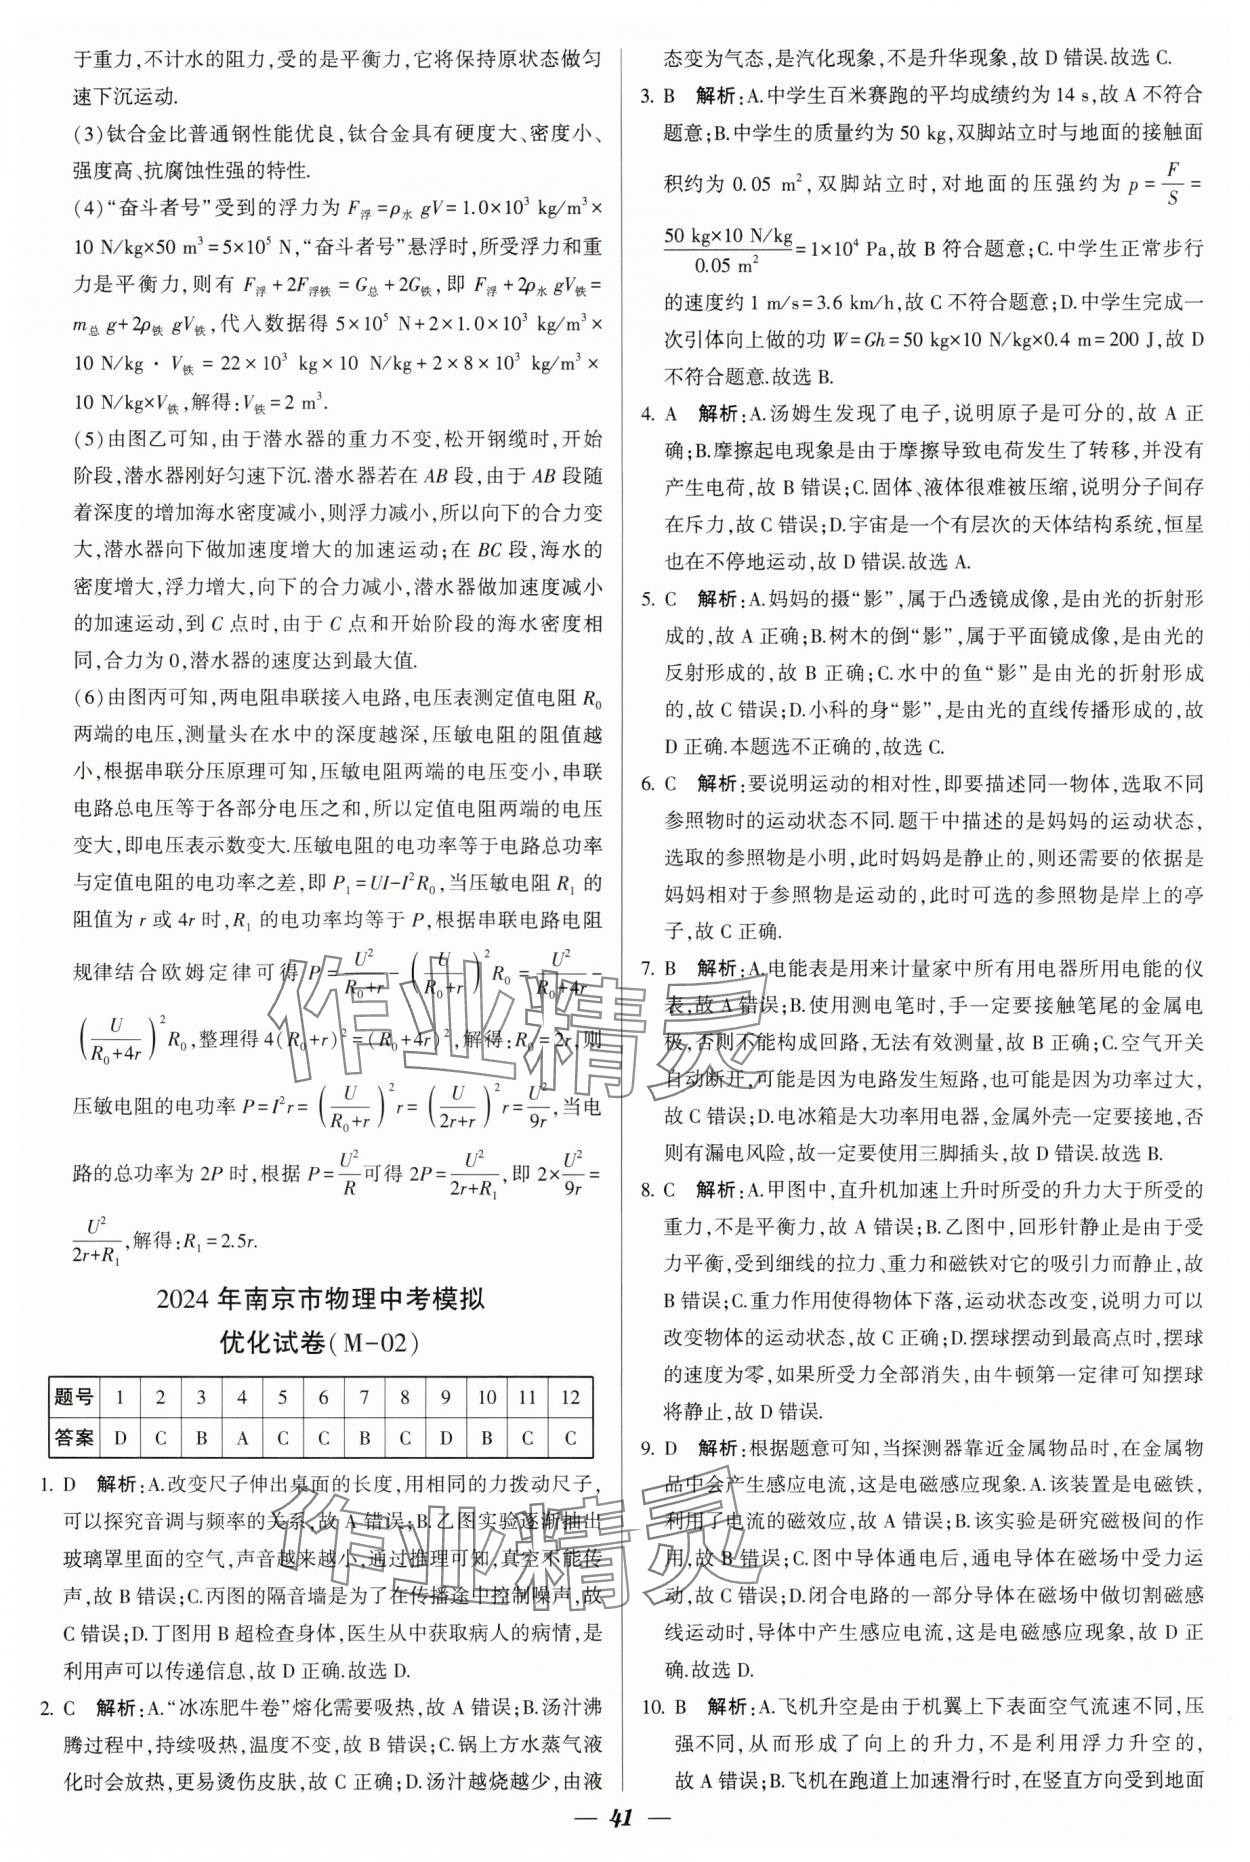 于重力,不计水的阻力,受的是平衡力,它将保持原状态做匀
速下沉运动.
(3)钛合金比普通钢性能优良,钛合金具有硬度大、密度小、
强度高、抗腐蚀性强的特性.
(4)“奋斗者号”受到的浮力为 F浮=ρ水 gV=1.0×10³ kg/m³×
10 N/kg×50 m³=5×10⁵ N,“奋斗者号”悬浮时,所受浮力和重
力是平衡力,则有 F浮+2F浮铁=G总+2G铁,即 F浮+2ρ水 gV铁=
m总 g+2ρ铁 gV铁,代入数据得 5×10⁵ N+2×1.0×10³ kg/m³×
10 N/kg · V铁 = 22×10³ kg×10 N/kg+2×8×10³ kg/m³×
10 N/kg×V铁,解得:V铁=2 m³.
(5)由图乙可知,由于潜水器的重力不变,松开钢缆时,开始
阶段,潜水器刚好匀速下沉.潜水器若在 AB 段,由于 AB 段随
着深度的增加海水密度减小,则浮力减小,所以向下的合力变
大,潜水器向下做加速度增大的加速运动;在 BC 段,海水的
密度增大,浮力增大,向下的合力减小,潜水器做加速度减小
的加速运动,到 C 点时,由于 C 点和开始阶段的海水密度相
同,合力为 0,潜水器的速度达到最大值.
(6)由图丙可知,两电阻串联接入电路,电压表测定值电阻 R₀
两端的电压,测量头在水中的深度越深,压敏电阻的阻值越
小,根据串联分压原理可知,压敏电阻两端的电压变小,串联
电路总电压等于各部分电压之和,所以定值电阻两端的电压
变大,即电压表示数变大.压敏电阻的电功率等于电路总功率
与定值电阻的电功率之差,即 P₁=UI-I²R₀,当压敏电阻 R₁ 的
阻值为 r 或 4r 时,R₁ 的电功率均等于 P,根据串联电路电阻
规律结合欧姆定律可得 P=U²/(R₀+r)-(U/(R₀+r))²R₀=U²/(R₀+4r)-
(U/(R₀+4r))²R₀,整理得 4(R₀+r)²=(R₀+4r)²,解得:R₀=2r,则
压敏电阻的电功率 P=I²r=(U/(R₀+r))²r=(U/(2r+r))²r=U²/9r,当电
路的总功率为 2P 时,根据 P=U²/R可得 2P=U²/(2r+R₁),即 2×U²/9r=
U²/(2r+R₁),解得:R₁=2.5r.
2024 年南京市物理中考模拟
优化试卷(M-02)
题号 1 2 3 4 5 6 7 8 9 10 11 12
答案 D C B A C C B C D B C C
1. D 解析:A.改变尺子伸出桌面的长度,用相同的力拨动尺子,
可以探究音调与频率的关系,故 A 错误;B.乙图实验逐渐抽出
玻璃罩里面的空气,声音越来越小,通过推理可知,真空不能传
声,故 B 错误;C.丙图的隔音墙是为了在传播途中控制噪声,故
C 错误;D.丁图用 B 超检查身体,医生从中获取病人的病情,是
利用声可以传递信息,故 D 正确.故选 D.
2. C 解析:A.“冰冻肥牛卷”熔化需要吸热,故 A 错误;B.汤汁沸
腾过程中,持续吸热,温度不变,故 B 错误;C.锅上方水蒸气液
化时会放热,更易烫伤皮肤,故 C 正确;D.汤汁越烧越少,由液
态变为气态,是汽化现象,不是升华现象,故 D 错误.故选 C.
3. B 解析:A.中学生百米赛跑的平均成绩约为 14 s,故 A 不符合
题意;B.中学生的质量约为 50 kg,双脚站立时与地面的接触面
积约为 0.05 m²,双脚站立时,对地面的压强约为 p=F/S=
50 kg×10 N/kg/0.05 m²=1×10⁴ Pa,故 B 符合题意;C.中学生正常步行
的速度约 1 m/s=3.6 km/h,故 C 不符合题意;D.中学生完成一
次引体向上做的功 W=Gh=50 kg×10 N/kg×0.4 m=200 J,故 D
不符合题意.故选 B.
4. A 解析:A.汤姆生发现了电子,说明原子是可分的,故 A 正
确;B.摩擦起电现象是由于摩擦导致电荷发生了转移,并没有
产生电荷,故 B 错误;C.固体、液体很难被压缩,说明分子间存
在斥力,故 C 错误;D.宇宙是一个有层次的天体结构系统,恒星
也在不停地运动,故 D 错误.故选 A.
5. C 解析:A.妈妈的摄“影”,属于凸透镜成像,是由光的折射形
成的,故 A 正确;B.树木的倒“影”,属于平面镜成像,是由光的
反射形成的,故 B 正确;C.水中的鱼“影”是由光的折射形成
的,故 C 错误;D.小科的身“影”,是由光的直线传播形成的,故
D 正确.本题选不正确的,故选 C.
6. C 解析:要说明运动的相对性,即要描述同一物体,选取不同
参照物时的运动状态不同.题干中描述的是妈妈的运动状态,
选取的参照物是小明,此时妈妈是静止的,则还需要的依据是
妈妈相对于参照物是运动的,此时可选的参照物是岸上的亭
子,故 C 正确.
7. B 解析:A.电能表是用来计量家中所有用电器所用电能的仪
表,故 A 错误;B.使用测电笔时,手一定要接触笔尾的金属电
极,否则不能构成回路,无法有效测量,故 B 正确;C.空气开关
自动断开,可能是因为电路发生短路,也可能是因为功率过大,
故 C 错误;D.电冰箱是大功率用电器,金属外壳一定要接地,否
则有漏电风险,故一定要使用三脚插头,故 D 错误.故选 B.
8. C 解析:A.甲图中,直升机加速上升时所受的升力大于所受的
重力,不是平衡力,故 A 错误;B.乙图中,回形针静止是由于受
力平衡,受到细线的拉力、重力和磁铁对它的吸引力而静止,故
B 错误;C.重力作用使物体下落,运动状态改变,说明力可以
改变物体的运动状态,故 C 正确;D.摆球摆动到最高点时,摆球
的速度为零,如果所受力全部消失,由牛顿第一定律可知摆球
将静止,故 D 错误.
9. D 解析:根据题意可知,当探测器靠近金属物品时,在金属物
品中会产生感应电流,这是电磁感应现象.A.该装置是电磁铁,
利用了电流的磁效应,故 A 错误;B.该实验是研究磁极间的作
用,故 B 错误;C.图中导体通电后,通电导体在磁场中受力运
动,故 C 错误;D.闭合电路的一部分导体在磁场中做切割磁感
线运动时,导体中产生感应电流,这是电磁感应现象,故 D 正
确.故选 D.
10. B 解析:A.飞机升空是由于机翼上下表面空气流速不同,压
强不同,从而形成了向上的升力,不是利用浮力升空的,
故 A 错误;B.飞机在跑道上加速滑行时,在竖直方向受到地面
— 41 —
作业精灵
作业精灵